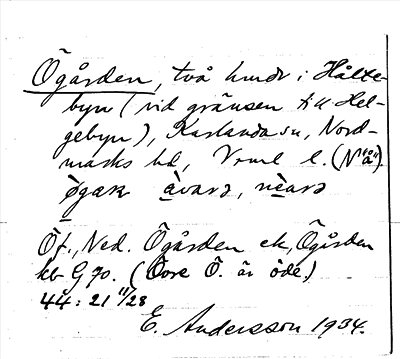 Ögården, två hmdr i Hålte-
byn (vid gränsen till Hel-
gebyn), Karlanda sn, Nord-
marks hd, Vrml l. (N"å")
øgaʀ àvarə, nèarə
Öf., Ned. Ögården ek, Ögården
kb G 90. (Övre Ö. är öde.)
44: 21 11/28
E. Andersson 1934.